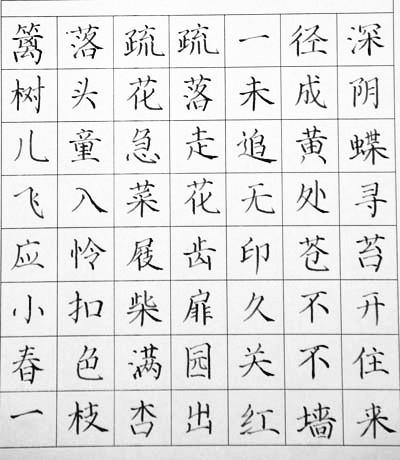 篱落疏疏一径深
树头花落未成阴
儿童急走追黄蝶
飞入菜花无处寻
应怜屐齿印苍苔
小扣柴扉久不开
春色满园关不住
一枝杏出红墙来